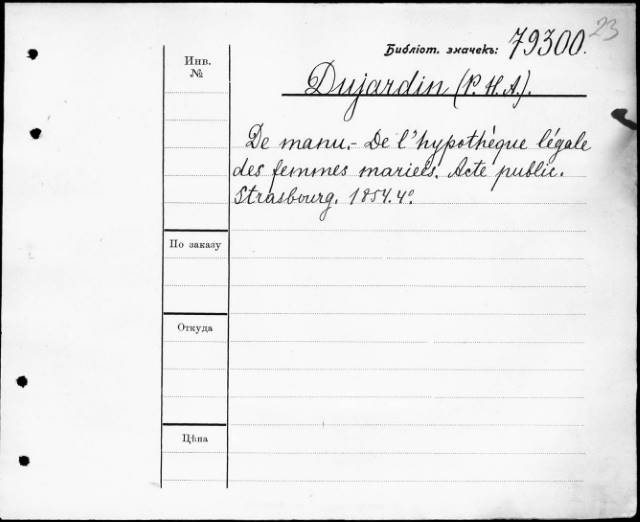 23
Библіот. значекъ: 79300.
Инв.
№
Dujardin (P. H. A.).
De manu. - De l'hypothèque légale
des femmes mariées. Acte public.
Strasbourg. 1854. 4º.
По заказу
Откуда
Цѣна